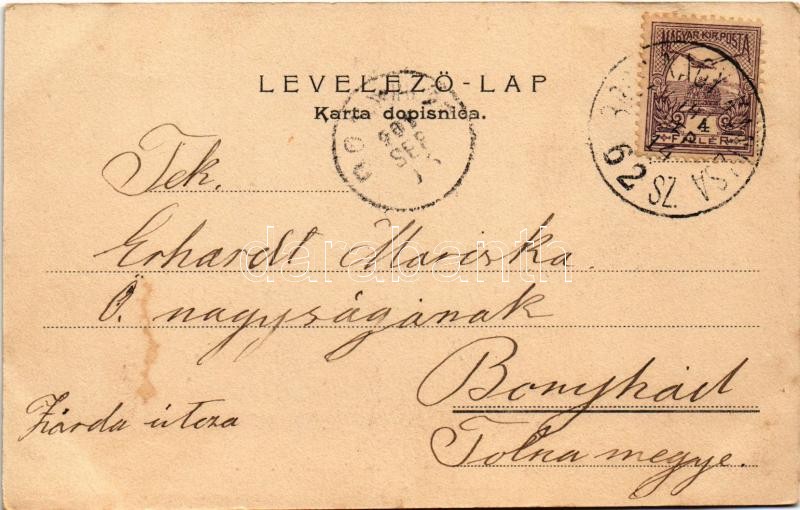 LEVELEZŐ-LAP
Karta dopisnica.
MAGYAR KIR. POSTA
4
FILLÉR
62
SZ.
SEP
Tek.
Erhardt Mariska.
Ő. nagyságának
Bonyhád
Zárda útcza
Tolna megye.
darabanth